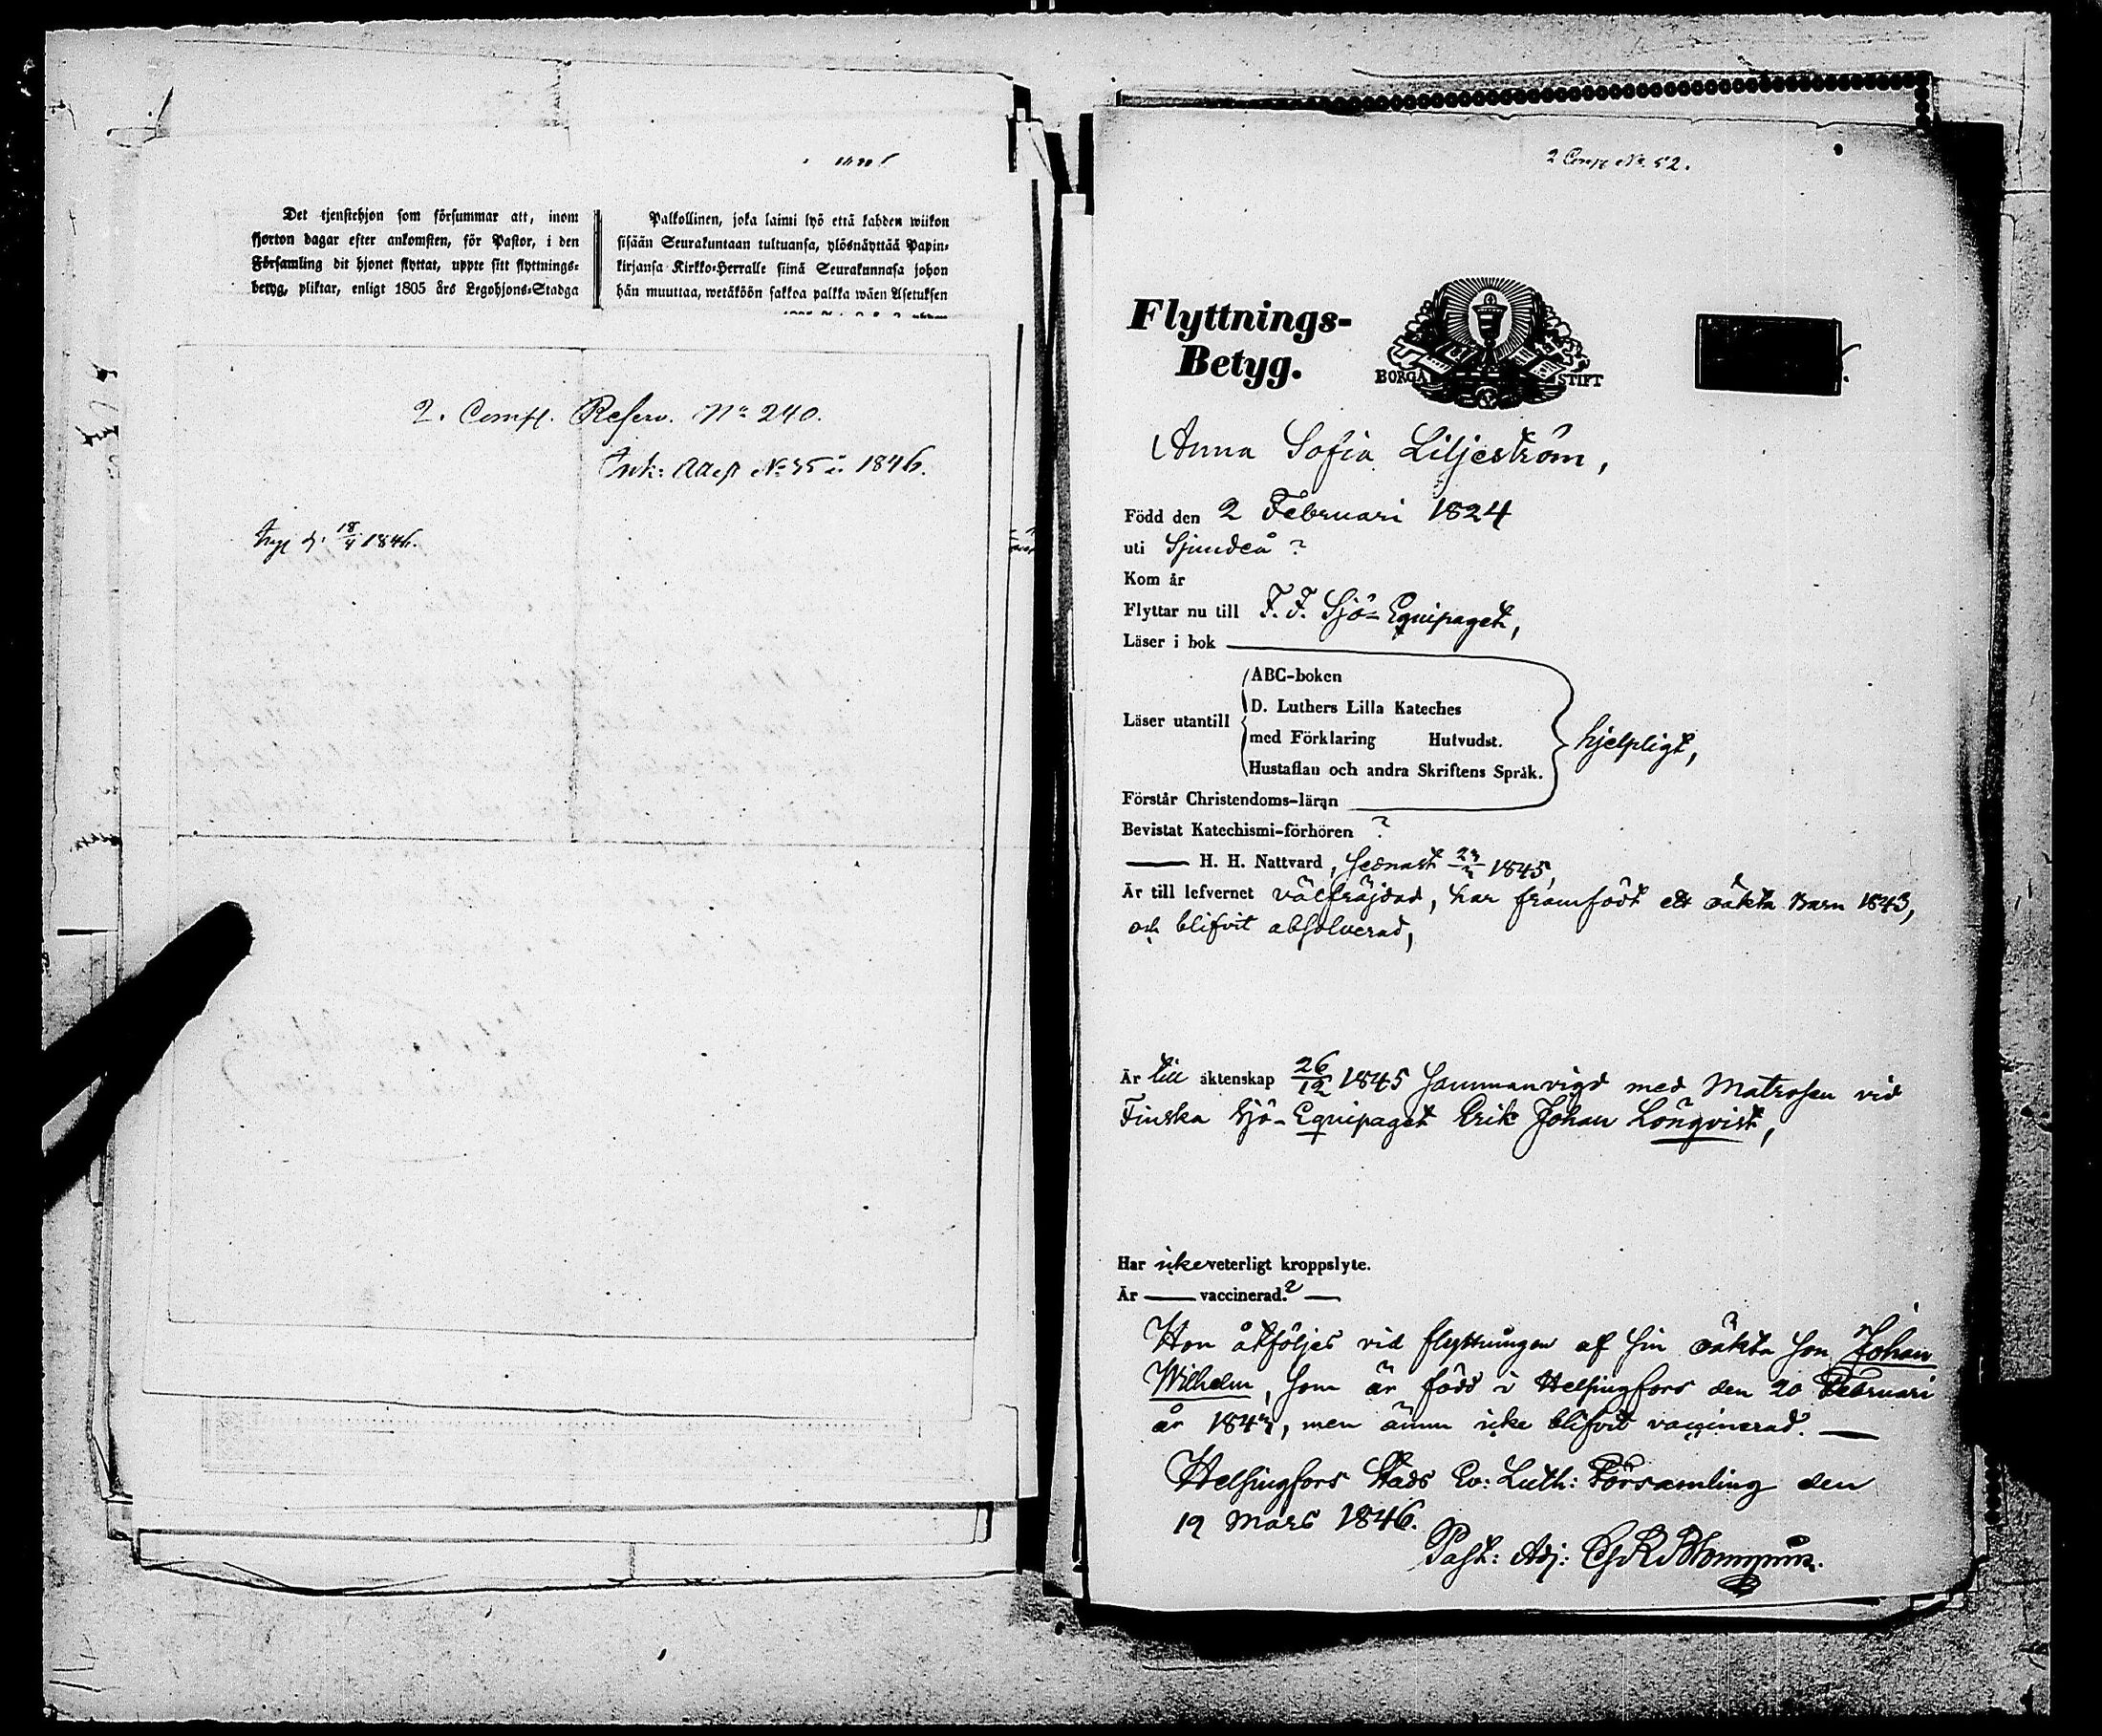 Det tjenstehjon som försummar att, inom
fjorton dagar efter ankomsten, för Pastor, i den
Församling dit hjonet flyttat, uppte sitt flyttnings-
betyg, pliktar, enligt 1805 års Legohjons-Stadga
Palkollinen, joka laimi lyö että kahden wiikon
sisään Seurakuntaan tultuansa, ylösnäyttää Papin-
kirjansa Kirkko-Herralle siinä Seurakunnasa johon
hän muuttaa, wetäköön sakkoa palkka wäen Asetuksen
2. Comp. Reserv. No 240.
Ink: Attest No 35 i 1846.
18/4 1846.
2 Comp No. 52.
Flyttnings-
Betyg.
BORGÅ STIFT
Anna Sofia Liljeström,
Född den 2 Februari 1824
uti Sjundeå ?
Kom år
Flyttar nu till F. F. Sjö-Equipaget,
Läser i bok
Läser utantill
ABC-boken
D. Luthers Lilla Kateches
med Förklaring Hufvudst.
Hustaflan och andra Skriftens Språk.
hjelpligt,
Förstår Christendoms-läran
Bevistat Katechismi-förhören ?
H. H. Nattvard, sednast 1845,
Är till lefvernet välfräjdad, har framfödt ett oäkta Barn 1843,
och blifvit absolverad,
Är till äktenskap 26/12 1845 sammanvigd med Matrosen vid
Finska Sjö-Equipaget Erik Johan Lönqvist,
Har icke veterligt kroppslyte.
Är vaccinerad.?
Hon åtföljes vid flyttningen af sin oäkta son Johan
Wilhelm, som är född i Helsingfors den 20 Februari
år 1843, men ännu icke blifvit vaccinerad.
Helsingfors Stads Ev: Luth: Församling den
19 Mars 1846.
Past: Adj: